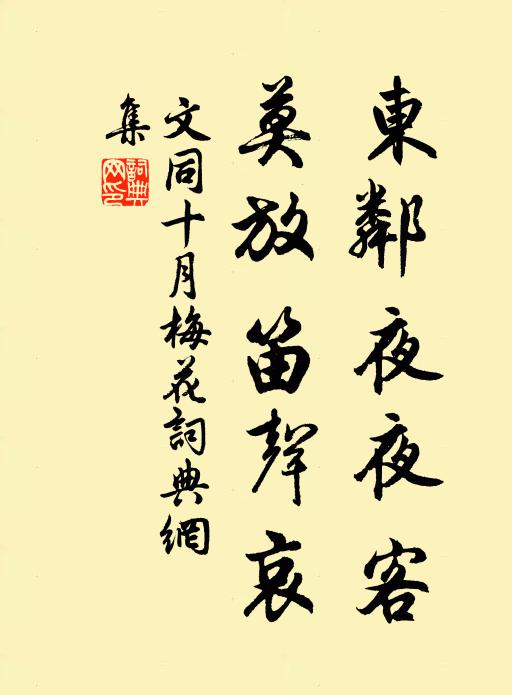 東鄰夜夜客
莫放笛聲哀
文同十月梅花詞典網
集
詞典網印